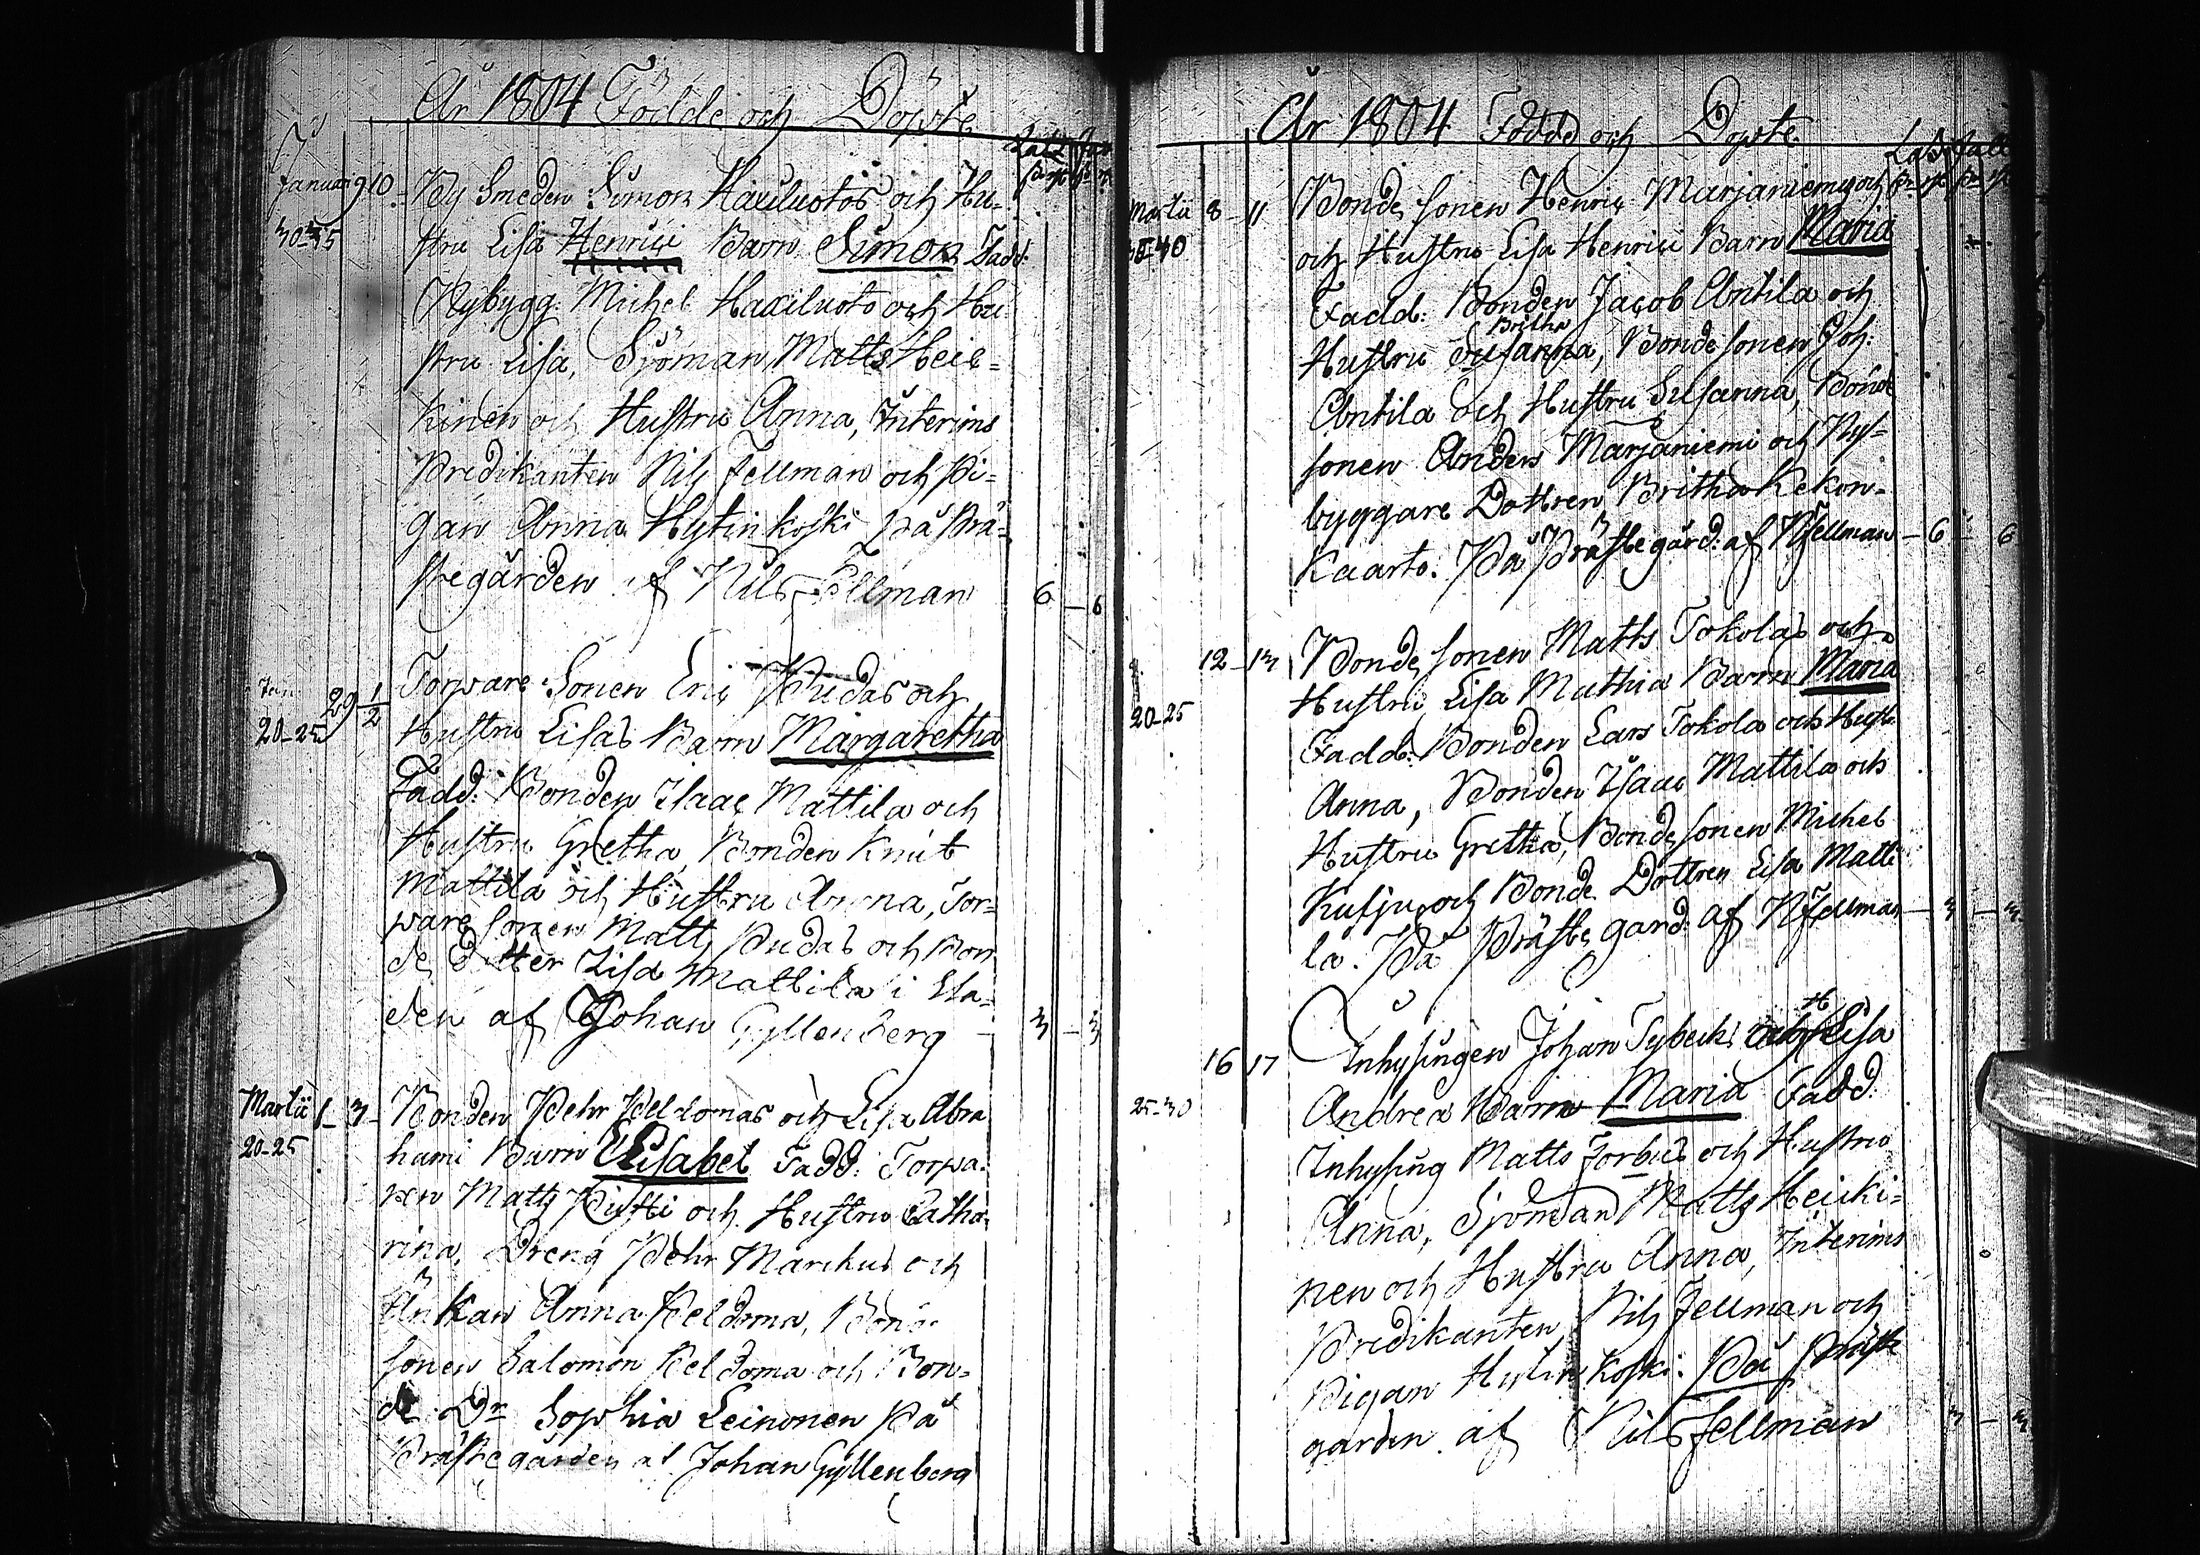 År 1804 Födde och Döpte
Januari 9 10. By Smeden Simon Haxiluotos och Hu-
30-35 stru Lisa Henrici Barn Simon Fadd:
Nybygg: Michel Haxiluoto och Hu
stru Lisa, Sjöman Matts Heic-
kinen och Hustru Anna, Interims
Predikanten Nils Fellman och Pi-
gan Anna Hytinkoski på Prä-
stegården af Nils Fellman 6 - 6
Jan: 29 1/2 Torpare Sonen Eric Pudas och
20-25 Hustru Lisas Barn Margaretha
Fadd: Bonden Isaac Mattila och
Hustru Gretha, Bonden Knut
Mattila och Hustru Anna, Tor-
pare sonen Matts Pudas och Bon
de Dotter Lisa Mattila i Sta-
den af Johan Gyllenberg 3 - 3
Martii 1 - 3 - Bonden Pehr Peldomas och Lisa Abra
20-25 hami Barn Elisabet Fadd: Torpa-
ren Matts och Hustru Catha-
rina, Dreng Pehr Marckus och
Änkan Anna Peldoma, Bonde
sonen Salomon Peldoma och Bon-
de Dr Sophia Leinonen På
Prästegården af Johan Gyllenberg
År 1804 Födde och Döpte
Martii 8 - 11 Bonde sonen Henric Marjaniemi och
40 och Hustru Lisa Henrici Barn Maria
Fadd: Bonden Jacob Antila och
Britha
Hustru Susanna, Bonde sonen Joh:
Antila och Hustru Susanna, Bonde
sonen Anders Marjaniemi och Ny-
byggare Dottren Britha Kekon-
kaarto. På Prästegård: af N Fellman - 6 - 6
12 - 13 Bonde sonen Matts Tokolas och
20-25 Hustru Lisa Mathia Barn Maria
Fadd: Bonden Lars Tokola och Hust:
Anna, Bonden Isaac Mattila och
Hustru Gretha, Bonde sonen Michel
och Bonde Dottren Lisa Matti
la. På Präste gård: af N Fellman - 3 - 3
H
16 17 Inhysingen Johan Tybecks och Lisa
25-30 Andrea Barn Maria Fadd:
Inhysing Matts Forbus och Hustru
Anna, Sjöman Matts Heicki-
nen och Hustru Anna, Interims
Predikanten Nils Fellman och
Pigan Hytinkoski: På Präste
garden af Nils Fellman 3 - 3